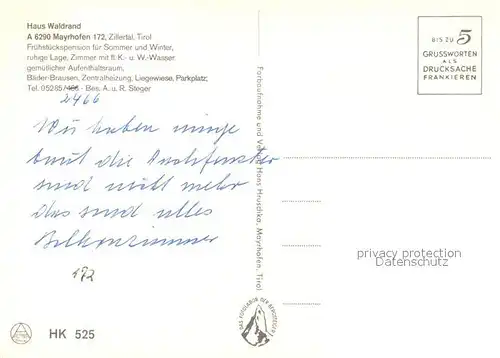 Haus Waldrand
A 6290 Mayrhofen 172, Zillertal, Tirol
Frühstückspension für Sommer und Winter,
ruhige Lage, Zimmer mit fl. K.- u. W.-Wasser
gemütlicher Aufenthaltsraum,
Bäder-Brausen, Zentralheizung, Liegewiese, Parkplatz;
Tel. 05285/ - Bes. A. u. R. Steger
2466
Wir haben
die
sind nicht mehr
das sind alles
Balkonzimmer
172
HK 525
Farbaufnahme und Verlag Hans Hruschka, Mayrhofen, Tirol
DAS FOTOLABOR DER BERGSTEIGER
BIS ZU 5
GRUSSWORTEN
ALS
DRUCKSACHE
FRANKIEREN
privacy protection
Datenschutz